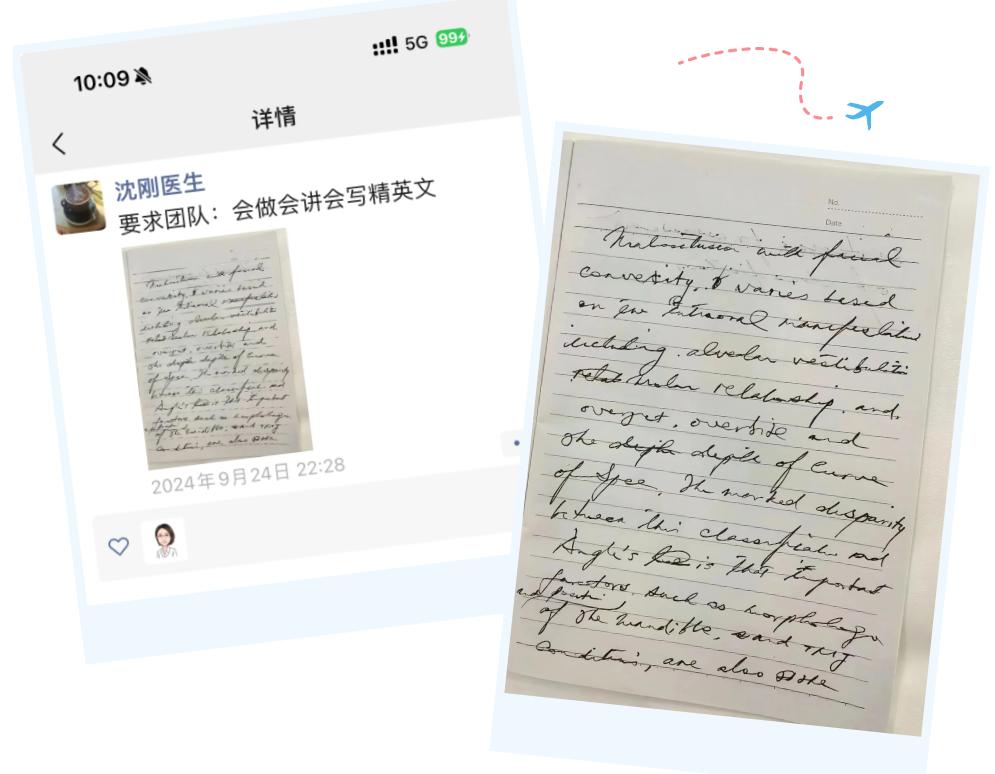 10:09
5G 99+
详情
沈刚医生
要求团队：会做会讲会写精英文
2024年9月24日 22:28
No.
Date
Malocclusion with facial
convexity, varies based
on the intraoral manifestation
including alveolar
relationship, and
overjet, overbite and
the depth of Curve
of Spee. The marked disparity
between this classification and
Angle's is that important
factors, such as morphology
and position
of the mandible, and TMJ
conditions, are also